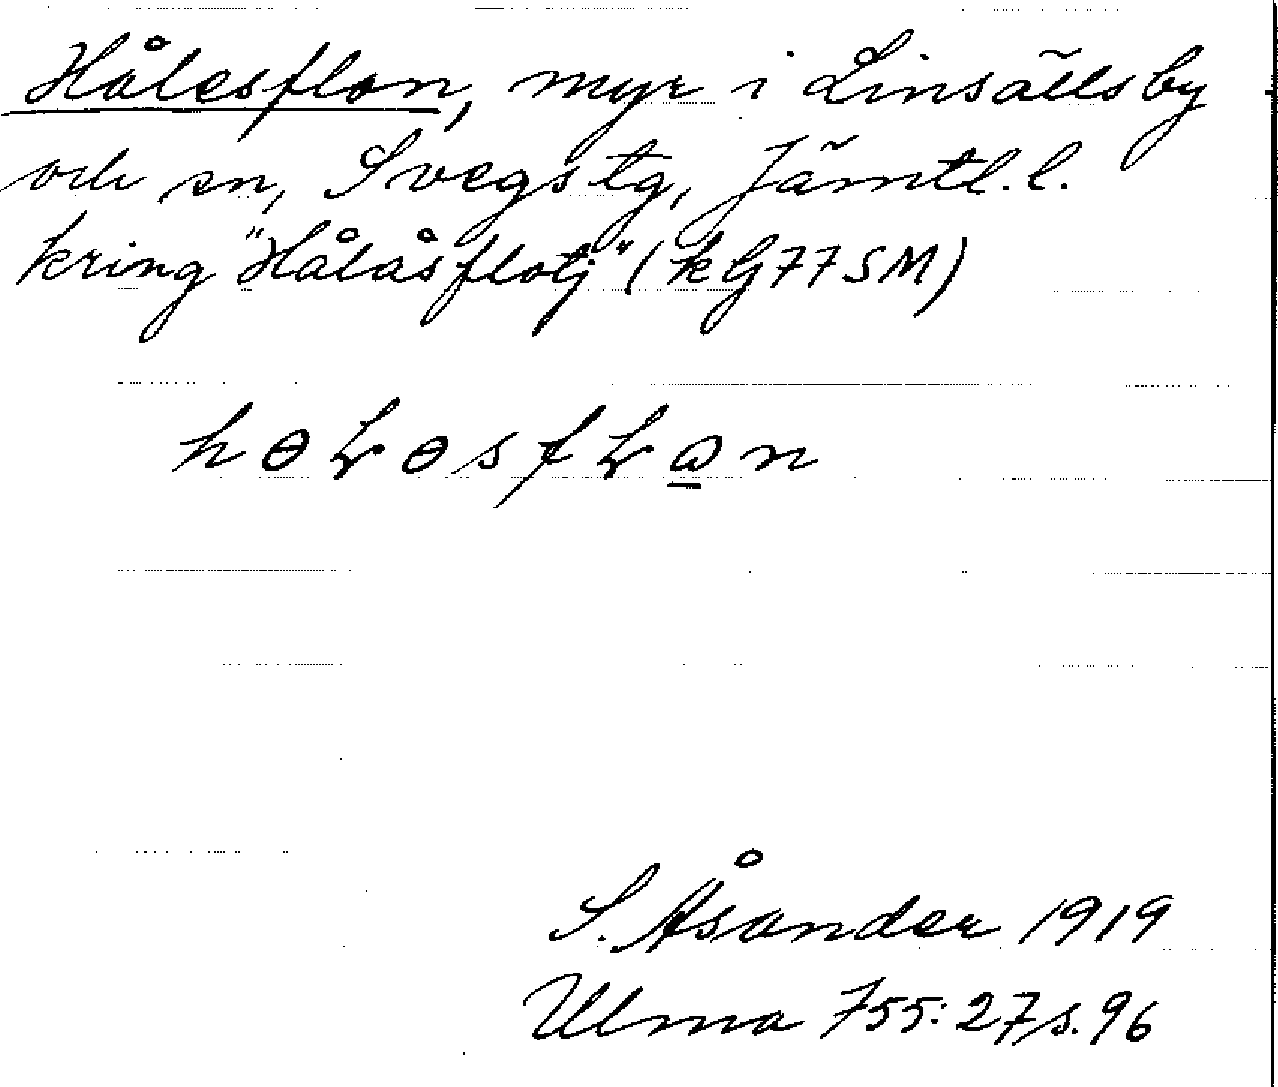 Hålesflon, myr i Linsälls by
och sn, Svegs tg, Jämtl. l.
kring "Hålåsflotj" (kG77SM)
hɵꞭɵsfꞭωn
S. Åsander 1919
Ulma 755:27 s. 96